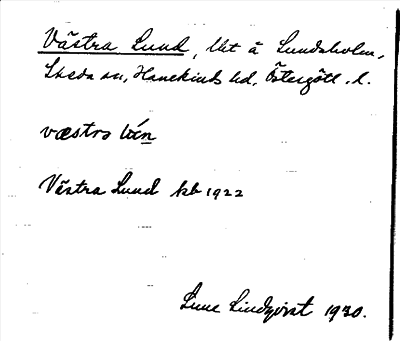 Västra Lund, lht å Lundsholm,
Skeda sn, Hanekinds hd, Östergötl. l.
væstrə
Västra Lund kb 1922
Sune Lindqvist 1930.